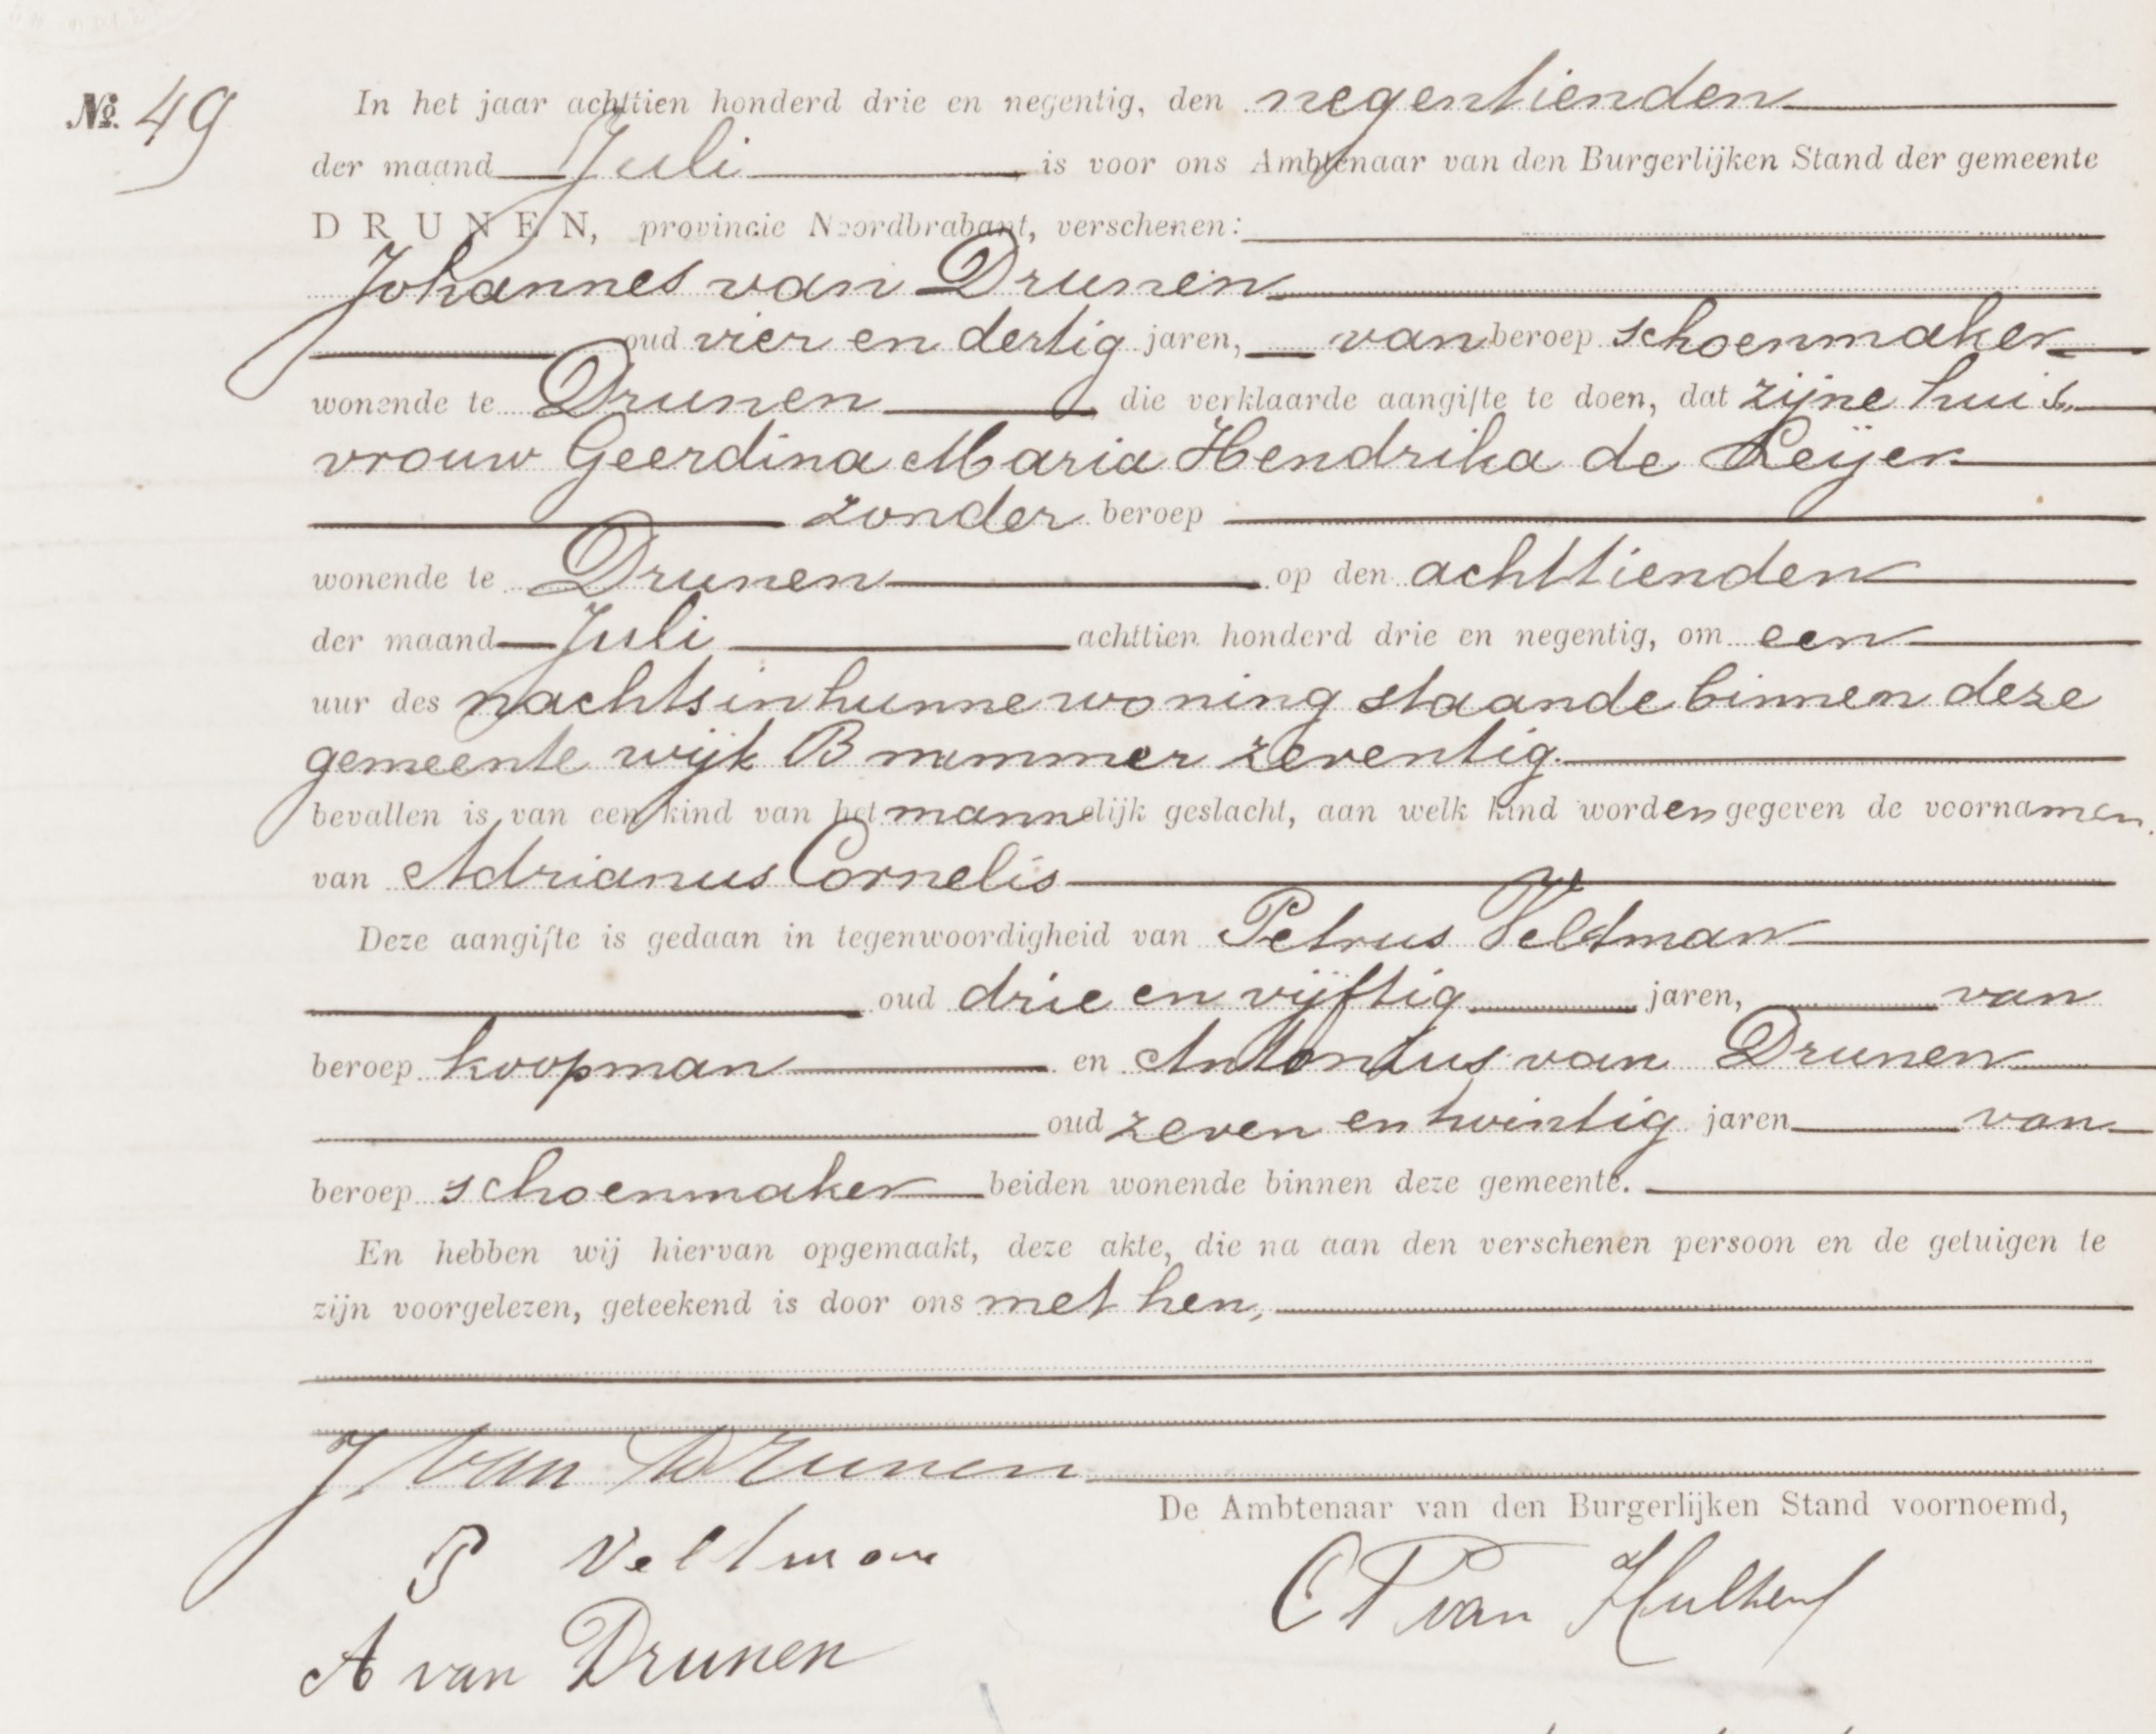 No. 49
In het jaar achttien honderd drie en negentig, den negentienden
der maand Juli is voor ons Ambtenaar van den Burgerlijken Stand der gemeente
DRUNEN, provincie Noordbrabant, verschenen:
Johannes van Drunen
oud vier en dertig jaren, van beroep schoenmaker
wonende te Drunen die verklaarde aangifte te doen, dat zijne huis„
vrouw Geerdina Maria Hendrika de Leijer
zonder beroep
wonende te Drunen op den achttienden
der maand Juli achttien honderd drie en negentig, om een
uur des nachts in hunne woning staande binnen deze
gemeente wijk B nummer zeventig.
bevallen is van een kind van het mannelijk geslacht, aan welk kind worden gegeven de voornamen.
van Adrianus Cornelis
Deze aangifte is gedaan in tegenwoordigheid van Petrus Veldman
oud drie en vijftig jaren, van
beroep koopman en Antonius van Drunen
oud zeven en twintig jaren van
beroep schoenmaker beiden wonende binnen deze gemeente.
En hebben wij hiervan opgemaakt, deze akte, die na aan den verschenen persoon en de getuigen te
zijn voorgelezen, geteekend is door ons met hen,
J van Drunen
De Ambtenaar van den Burgerlijken Stand voornoemd,
P Veltman
C P van Hulten
A van Drunen